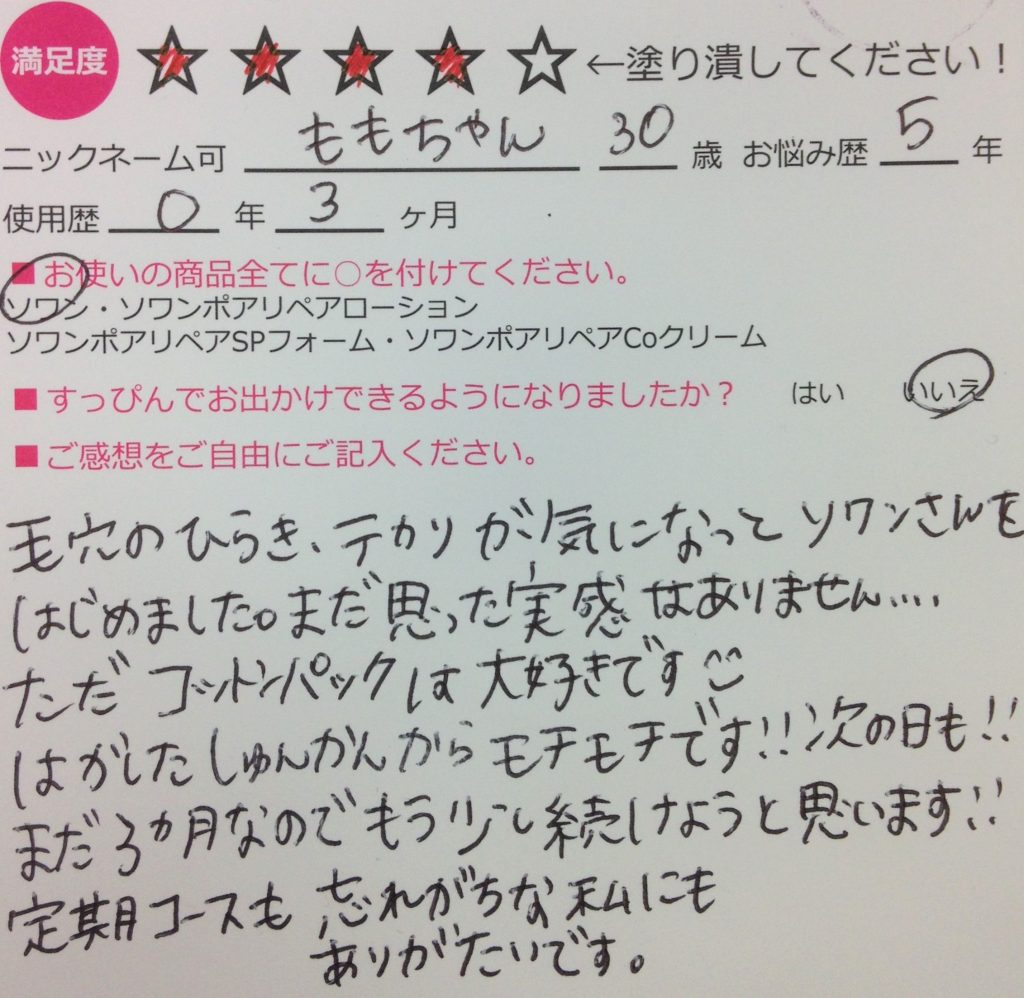 満足度 ★★★★☆ ←塗り潰してください！
ニックネーム可 ももちゃん 30 歳 お悩み歴 5 年
使用歴 0 年 3 ヶ月
■ お使いの商品全てに○を付けてください。
ソワン・ソワンポアリペアローション
ソワンポアリペアSPフォーム・ソワンポアリペアCoクリーム
■ すっぴんでお出かけできるようになりましたか？ はい いいえ
■ ご感想をご自由にご記入ください。
毛穴のひらき、テカリが気になってソワンさんを
はじめました。まだ思った実感はありません....
ただコットンパックは大好きです
はがしたしゅんかんからモチモチです!!次の日も!!
まだ3か月なのでもう少し続けようと思います!!
定期コースも忘れがちな私にも
ありがたいです。